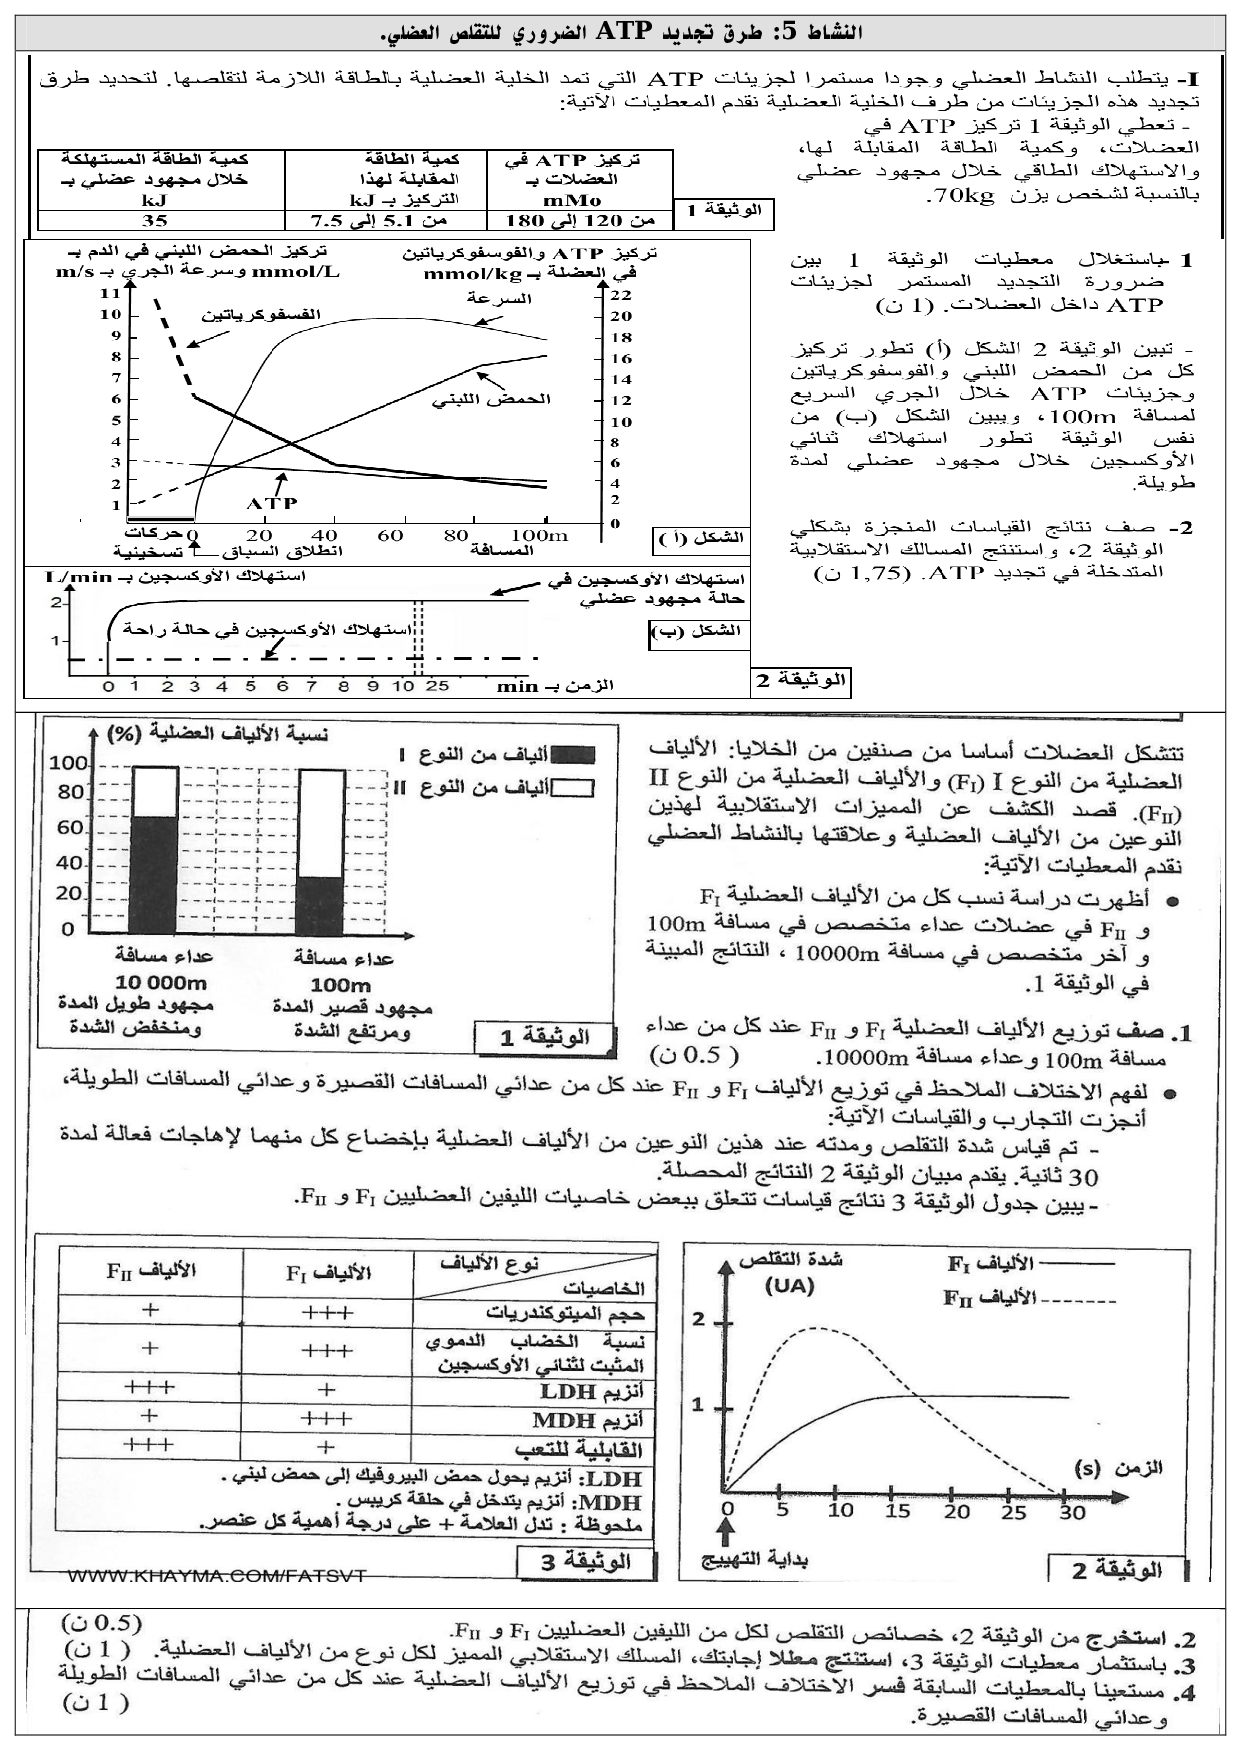 النشاط 5: طرق تجديد ATP الضروري للتقلص العضلي.
I- يتطلب النشاط العضلي وجودا مستمرا لجزيئات ATP التي تمد الخلية العضلية بالطاقة اللازمة لتقلصها. لتحديد طرق
تجديد هذه الجزيئات من طرف الخلية العضلية نقدم المعطيات الآتية:
- تعطي الوثيقة 1 تركيز ATP في
العضلات، وكمية الطاقة المقابلة لها،
والاستهلاك الطاقي خلال مجهود عضلي
بالنسبة لشخص يزن 70kg.
تركيز ATP في العضلات بـ mMo
كمية الطاقة المقابلة لهذا التركيز بـ kJ
كمية الطاقة المستهلكة خلال مجهود عضلي بـ kJ
من 120 إلى 180
من 5.1 إلى 7.5
35
الوثيقة 1
1 - باستغلال معطيات الوثيقة 1 بين
ضرورة التجديد المستمر لجزيئات
ATP داخل العضلات. (1 ن)
- تبين الوثيقة 2 الشكل (أ) تطور تركيز
كل من الحمض اللبني والفوسفوكرياتين
وجزيئات ATP خلال الجري السريع
لمسافة 100m، ويبين الشكل (ب) من
نفس الوثيقة تطور استهلاك ثنائي
الأوكسجين خلال مجهود عضلي لمدة
طويلة.
2- صف نتائج القياسات المنجزة بشكلي
الوثيقة 2، واستنتج المسالك الاستقلابية
المتدخلة في تجديد ATP. (1,75 ن)
تركيز ATP والفوسفوكرياتين
في العضلة بـ mmol/kg
تركيز الحمض اللبني في الدم بـ
mmol/L وسرعة الجري بـ m/s
11
10
9
8
7
6
5
4
3
2
1
22
20
18
16
14
12
10
8
6
4
2
0
السرعة
الفسفوكرياتين
الحمض اللبني
ATP
0 20 40 60 80 100m
حركات
تسخينية
انطلاق السباق
المسافة
الشكل (أ)
استهلاك الأوكسجين بـ L/min
استهلاك الأوكسجين في
حالة مجهود عضلي
استهلاك الأوكسجين في حالة راحة
2
1
0 1 2 3 4 5 6 7 8 9 10 25
الزمن بـ min
الشكل (ب)
الوثيقة 2
تتشكل العضلات أساسا من صنفين من الخلايا: الألياف
العضلية من النوع I (FI) والألياف العضلية من النوع II
(FII). قصد الكشف عن المميزات الاستقلابية لهذين
النوعين من الألياف العضلية وعلاقتها بالنشاط العضلي
نقدم المعطيات الآتية:
• أظهرت دراسة نسب كل من الألياف العضلية FI
و FII في عضلات عداء متخصص في مسافة 100m
و آخر متخصص في مسافة 10000m ، النتائج المبينة
في الوثيقة 1.
نسبة الألياف العضلية (%)
ألياف من النوع I
ألياف من النوع II
100
80
60
40
20
0
عداء مسافة
10 000m
مجهود طويل المدة
ومنخفض الشدة
عداء مسافة
100m
مجهود قصير المدة
ومرتفع الشدة
الوثيقة 1
1. صف توزيع الألياف العضلية FI و FII عند كل من عداء
مسافة 100m وعداء مسافة 10000m. ( 0.5 ن)
• لفهم الاختلاف الملاحظ في توزيع الألياف FI و FII عند كل من عدائي المسافات القصيرة وعدائي المسافات الطويلة،
أنجزت التجارب والقياسات الآتية:
- تم قياس شدة التقلص ومدته عند هذين النوعين من الألياف العضلية بإخضاع كل منهما لإهاجات فعالة لمدة
30 ثانية. يقدم مبيان الوثيقة 2 النتائج المحصلة.
- يبين جدول الوثيقة 3 نتائج قياسات تتعلق ببعض خاصيات الليفين العضليين FI و FII.
شدة التقلص
(UA)
الألياف FI
الألياف FII
2
1
0 5 10 15 20 25 30
الزمن (s)
بداية التهييج
الوثيقة 2
نوع الألياف
الخاصيات
الألياف FI
الألياف FII
حجم الميتوكندريات +++ +
نسبة الخضاب الدموي المثبت لثنائي الأوكسجين +++ +
أنزيم LDH + +++
أنزيم MDH +++ +
القابلية للتعب + +++
LDH: أنزيم يحول حمض البيروفيك إلى حمض لبني .
MDH: أنزيم يتدخل في حلقة كريبس .
ملحوظة : تدل العلامة + على درجة أهمية كل عنصر.
الوثيقة 3
WWW.KHAYMA.COM/FATSVT
2. استخرج من الوثيقة 2، خصائص التقلص لكل من الليفين العضليين FI و FII. (0.5 ن)
3. باستثمار معطيات الوثيقة 3، استنتج معللا إجابتك، المسلك الاستقلابي المميز لكل نوع من الألياف العضلية. ( 1 ن)
4. مستعينا بالمعطيات السابقة فسر الاختلاف الملاحظ في توزيع الألياف العضلية عند كل من عدائي المسافات الطويلة
وعدائي المسافات القصيرة. ( 1 ن)